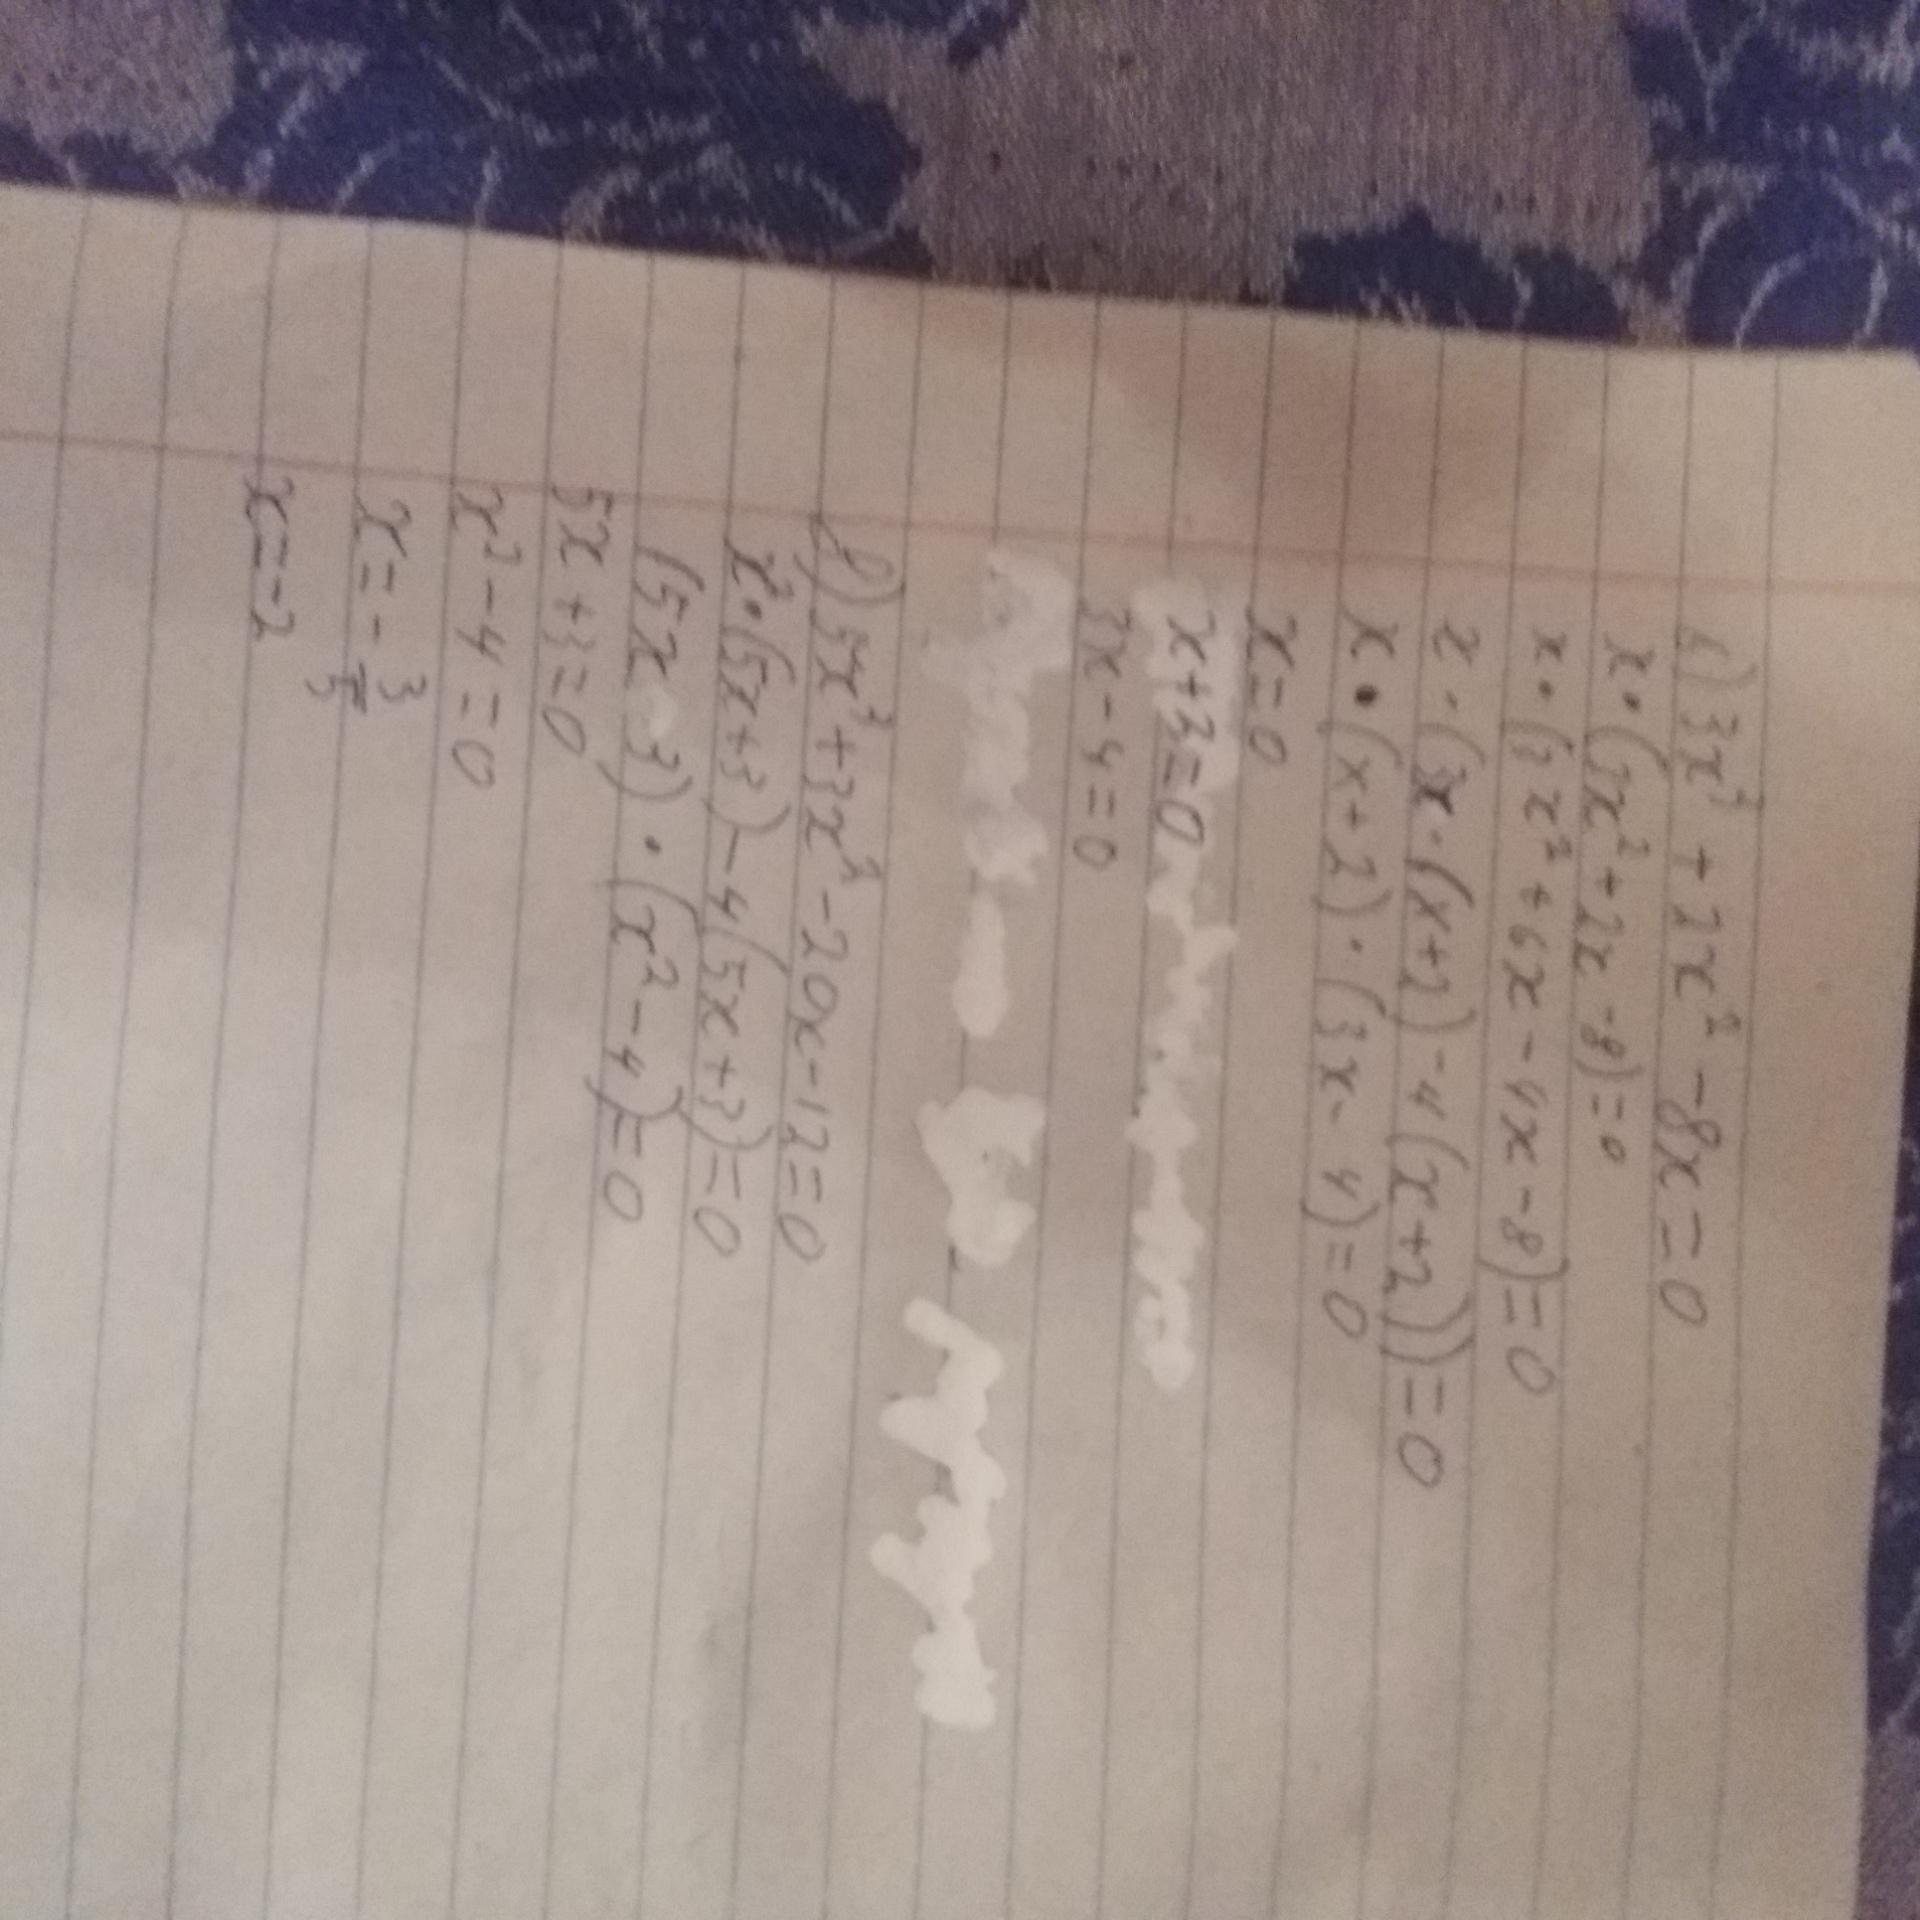 b) 3x³ + 2x² - 8x = 0
x • (3x² + 2x - 8) = 0
x • (3x² + 6x - 4x - 8) = 0
x • (3x • (x + 2) - 4 (x + 2)) = 0
x • (x + 2) • (3x - 4) = 0
x = 0
x + 3 = 0
3x - 4 = 0
f) 5x³ + 3x² - 20x - 12 = 0
x² • (5x + 3) - 4 (5x + 3) = 0
(5x 3) • (x² - 4) = 0
5x + 3 = 0
x² - 4 = 0
x = - 3/5
x = -2